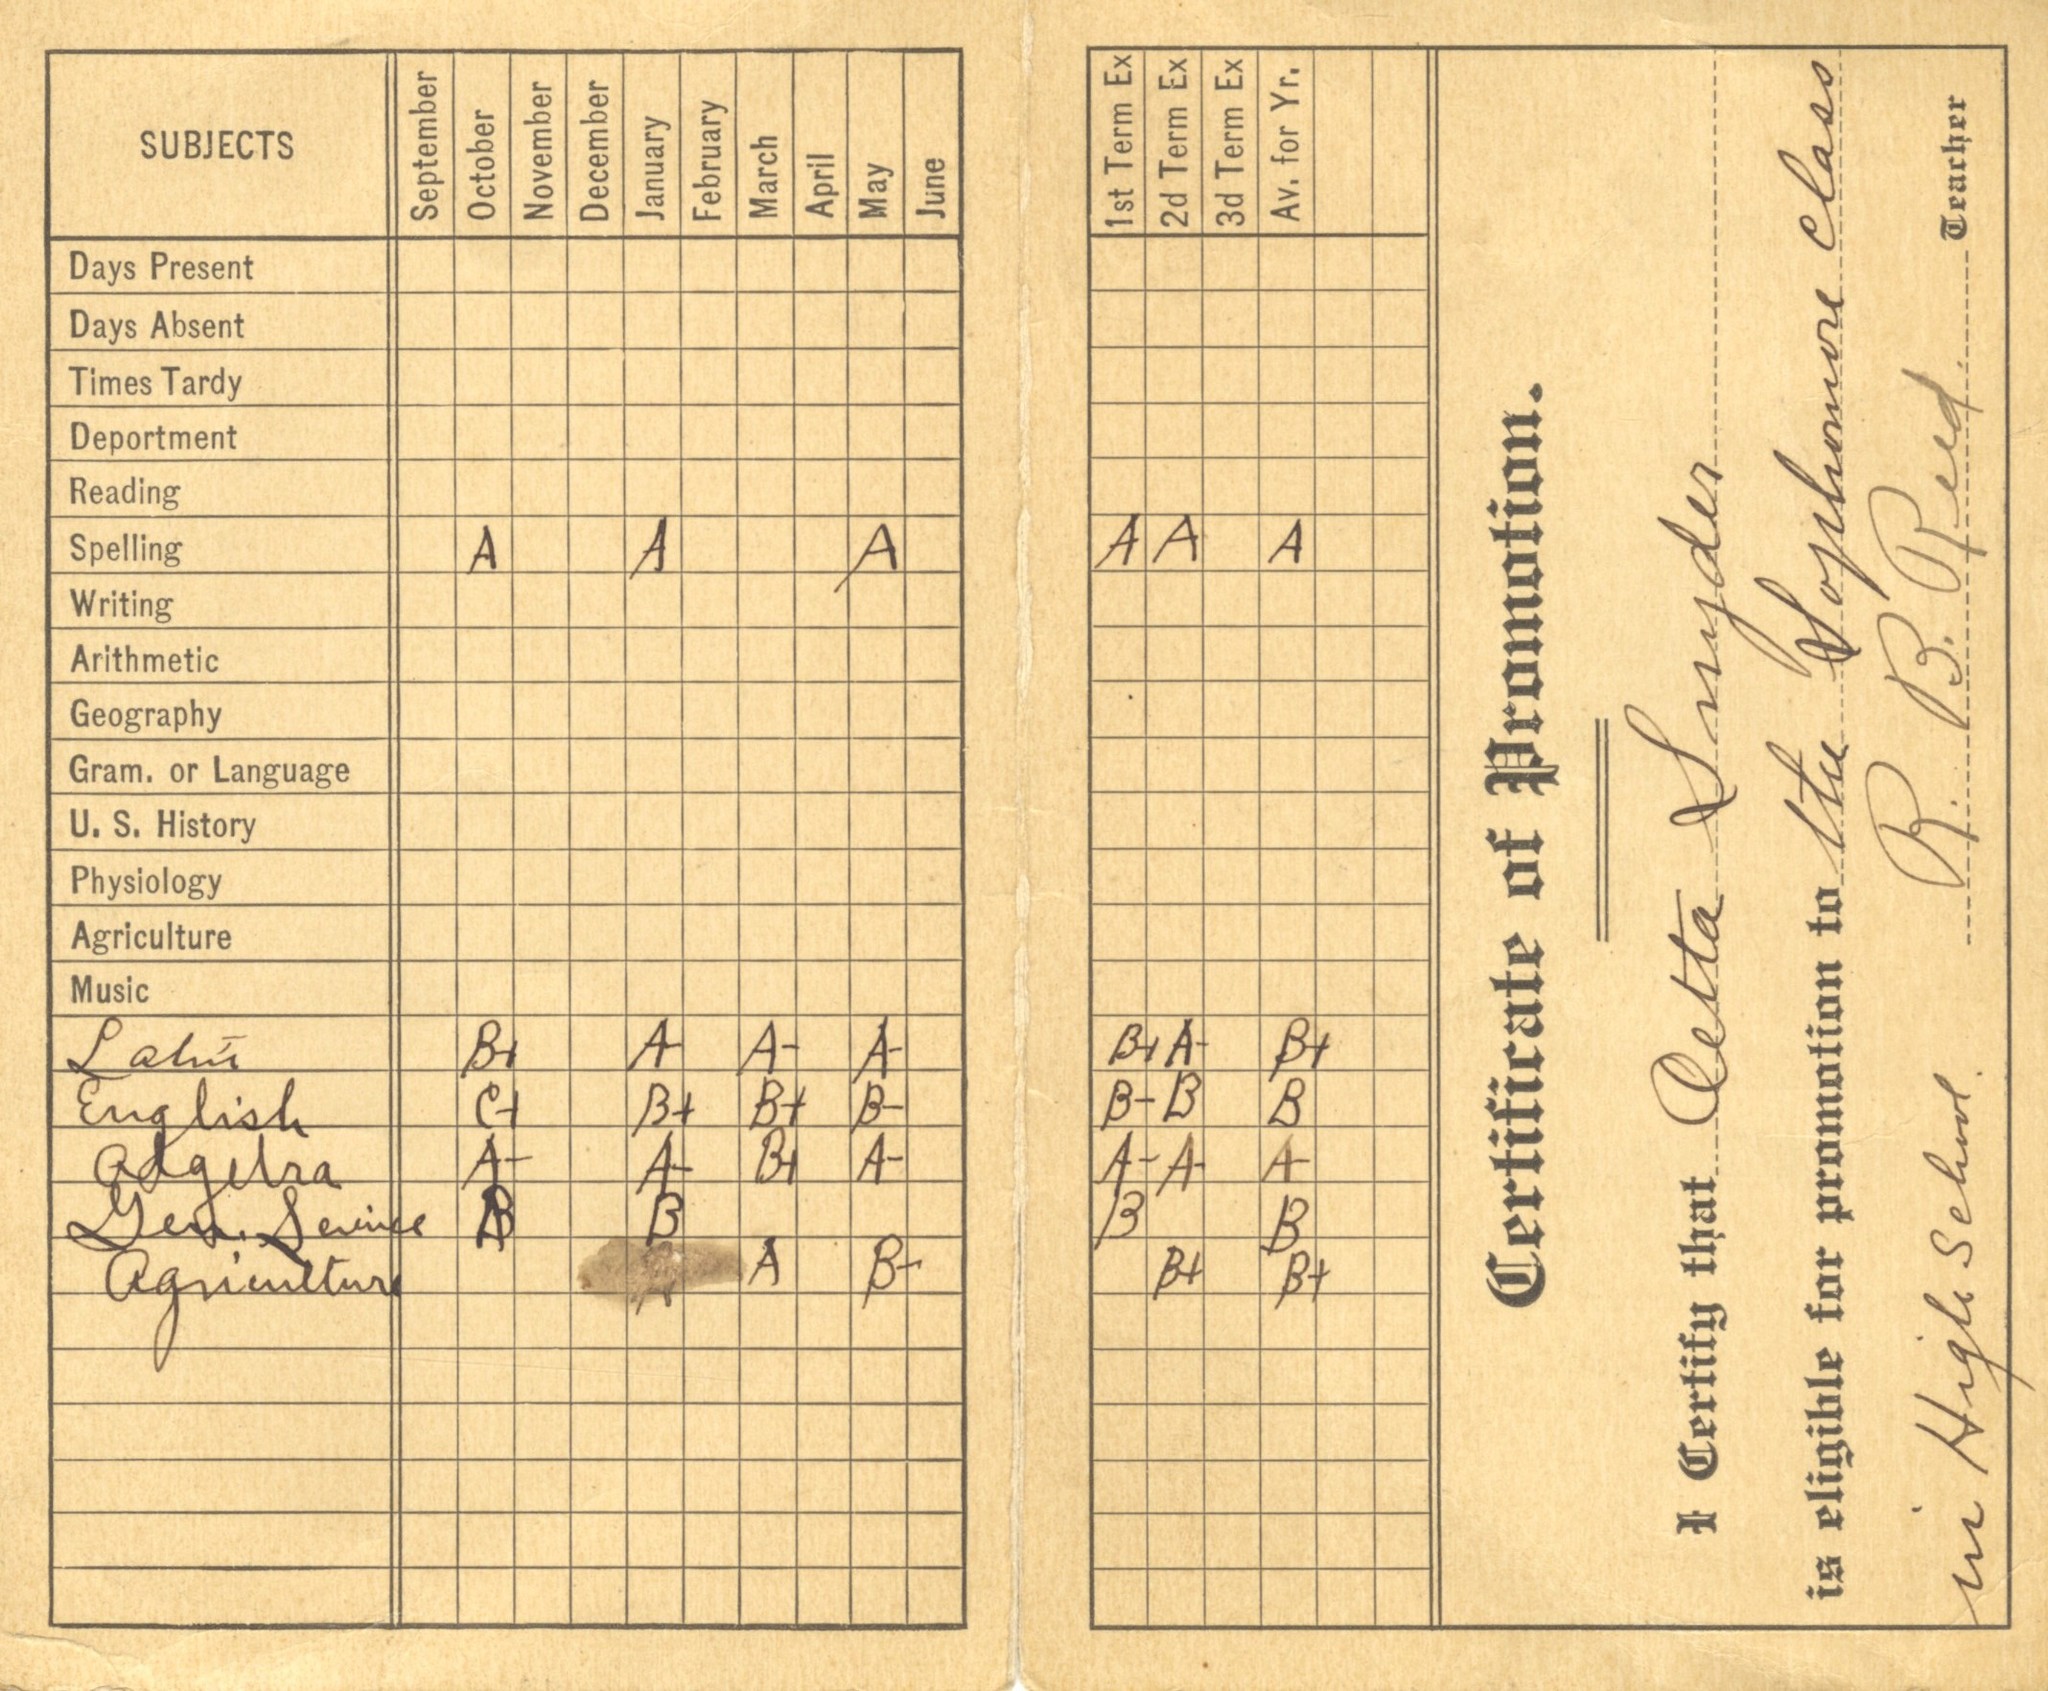 SUBJECTS September October November December January February March April May June 1st Term Ex 2d Term Ex 3d Term Ex Av. for Yr.
Days Present
Days Absent
Times Tardy
Deportment
Reading
Spelling A A A A A A
Writing
Arithmetic
Geography
Gram. or Language
U. S. History
Physiology
Agriculture
Music
Latin B+ A- A- A- B+ A- B+
English C+ B+ B+ B- B- B B
Algebra A- A- B+ A- A- A- A-
Gen. Science B B B B
Agriculture A B- B+ B+
Certificate of Promotion.
I Certify that Cetta Snyder
is eligible for promotion to the Sophomore class
in High School. R. B. Reed. Teacher